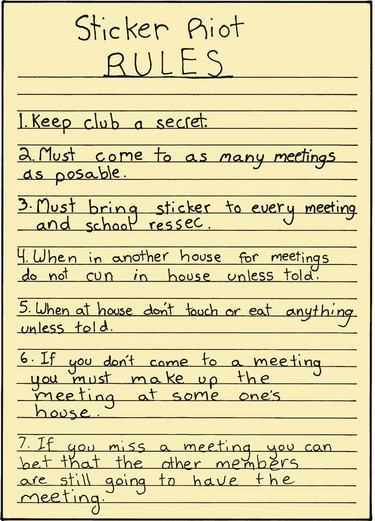 Sticker Riot
RULES
1. Keep club a secret.
2. Must come to as many meetings
as posable.
3. Must bring sticker to every meeting
and school ressec.
4. When in another house for meetings
do not cun in house unless told.
5. When at house don't touch or eat anything
unless told.
6. If you don't come to a meeting
you must make up the
meeting at some one's
house.
7. If you miss a meeting you can
bet that the other members
are still going to have the
meeting.